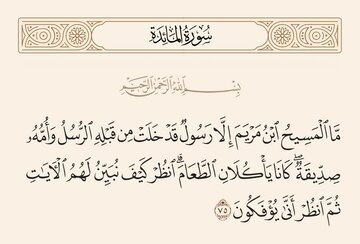 سُورَةُ المَائِدَةِ
بِسْمِ اللَّهِ الرَّحْمَٰنِ الرَّحِيمِ
مَّا ٱلْمَسِيحُ ٱبْنُ مَرْيَمَ إِلَّا رَسُولٌ قَدْ خَلَتْ مِن قَبْلِهِ ٱلرُّسُلُ وَأُمُّهُۥ
صِدِّيقَةٌۖ كَانَا يَأْكُلَانِ ٱلطَّعَامَۗ ٱنظُرْ كَيْفَ نُبَيِّنُ لَهُمُ ٱلْءَايَٰتِ
ثُمَّ ٱنظُرْ أَنَّىٰ يُؤْفَكُونَ ٧٥